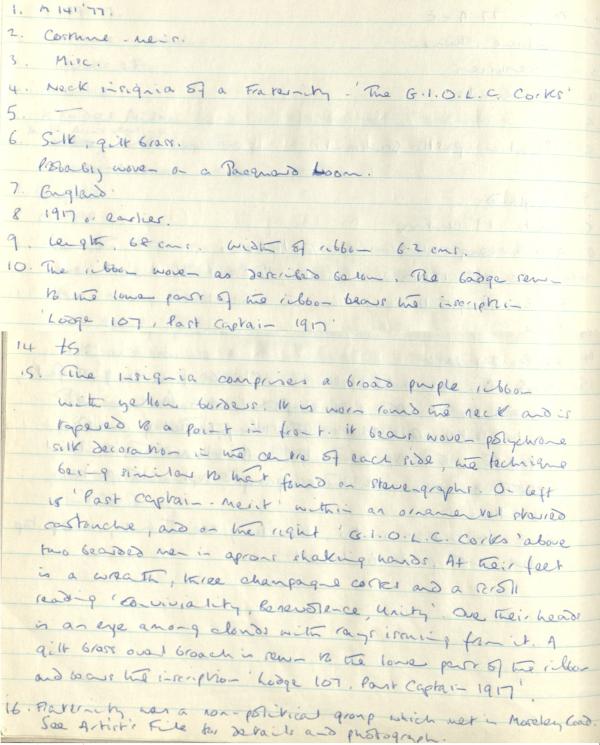 1. A 141'77.
2. Costume - men's.
3. Misc.
4. Neck insignia of a Fraternity - 'The G.I.O.L.C. Corks'
5. —
6. Silk, gilt brass.
Probably woven on a Jacquard loom.
7. England.
8 1917 or earlier.
9. Length. 68 cms. Width of ribbon 6.2 cms.
10. The ribbon woven as described below. The badge sewn
to the lower part of the ribbon bears the inscription
'Lodge 107, Past Captain 1917'
14 £5
15. The insignia comprises a broad purple ribbon
with yellow borders. It is worn round the neck and is
tapered to a point in front. It bears woven polychrome
silk decoration in the centre of each side, the technique
being similar to that found on stevengraphs. On left
is 'Past Captain - Merit' within an ornamental
cartouche, and on the right 'G.I.O.L.C. Corks' above
two bearded men in aprons shaking hands. At their feet
is a wreath, three champagne corks and a scroll
reading 'Conviviality, Benevolence, Unity'. Over their heads
is an eye among clouds with rays issuing from it. A
gilt brass oval broach is sewn to the lower part of the ribbon
and bears the inscription 'Lodge 107, Past Captain 1917'.
16. Fraternity was a non-political group which met in Road.
See Artist's File for details and photograph.